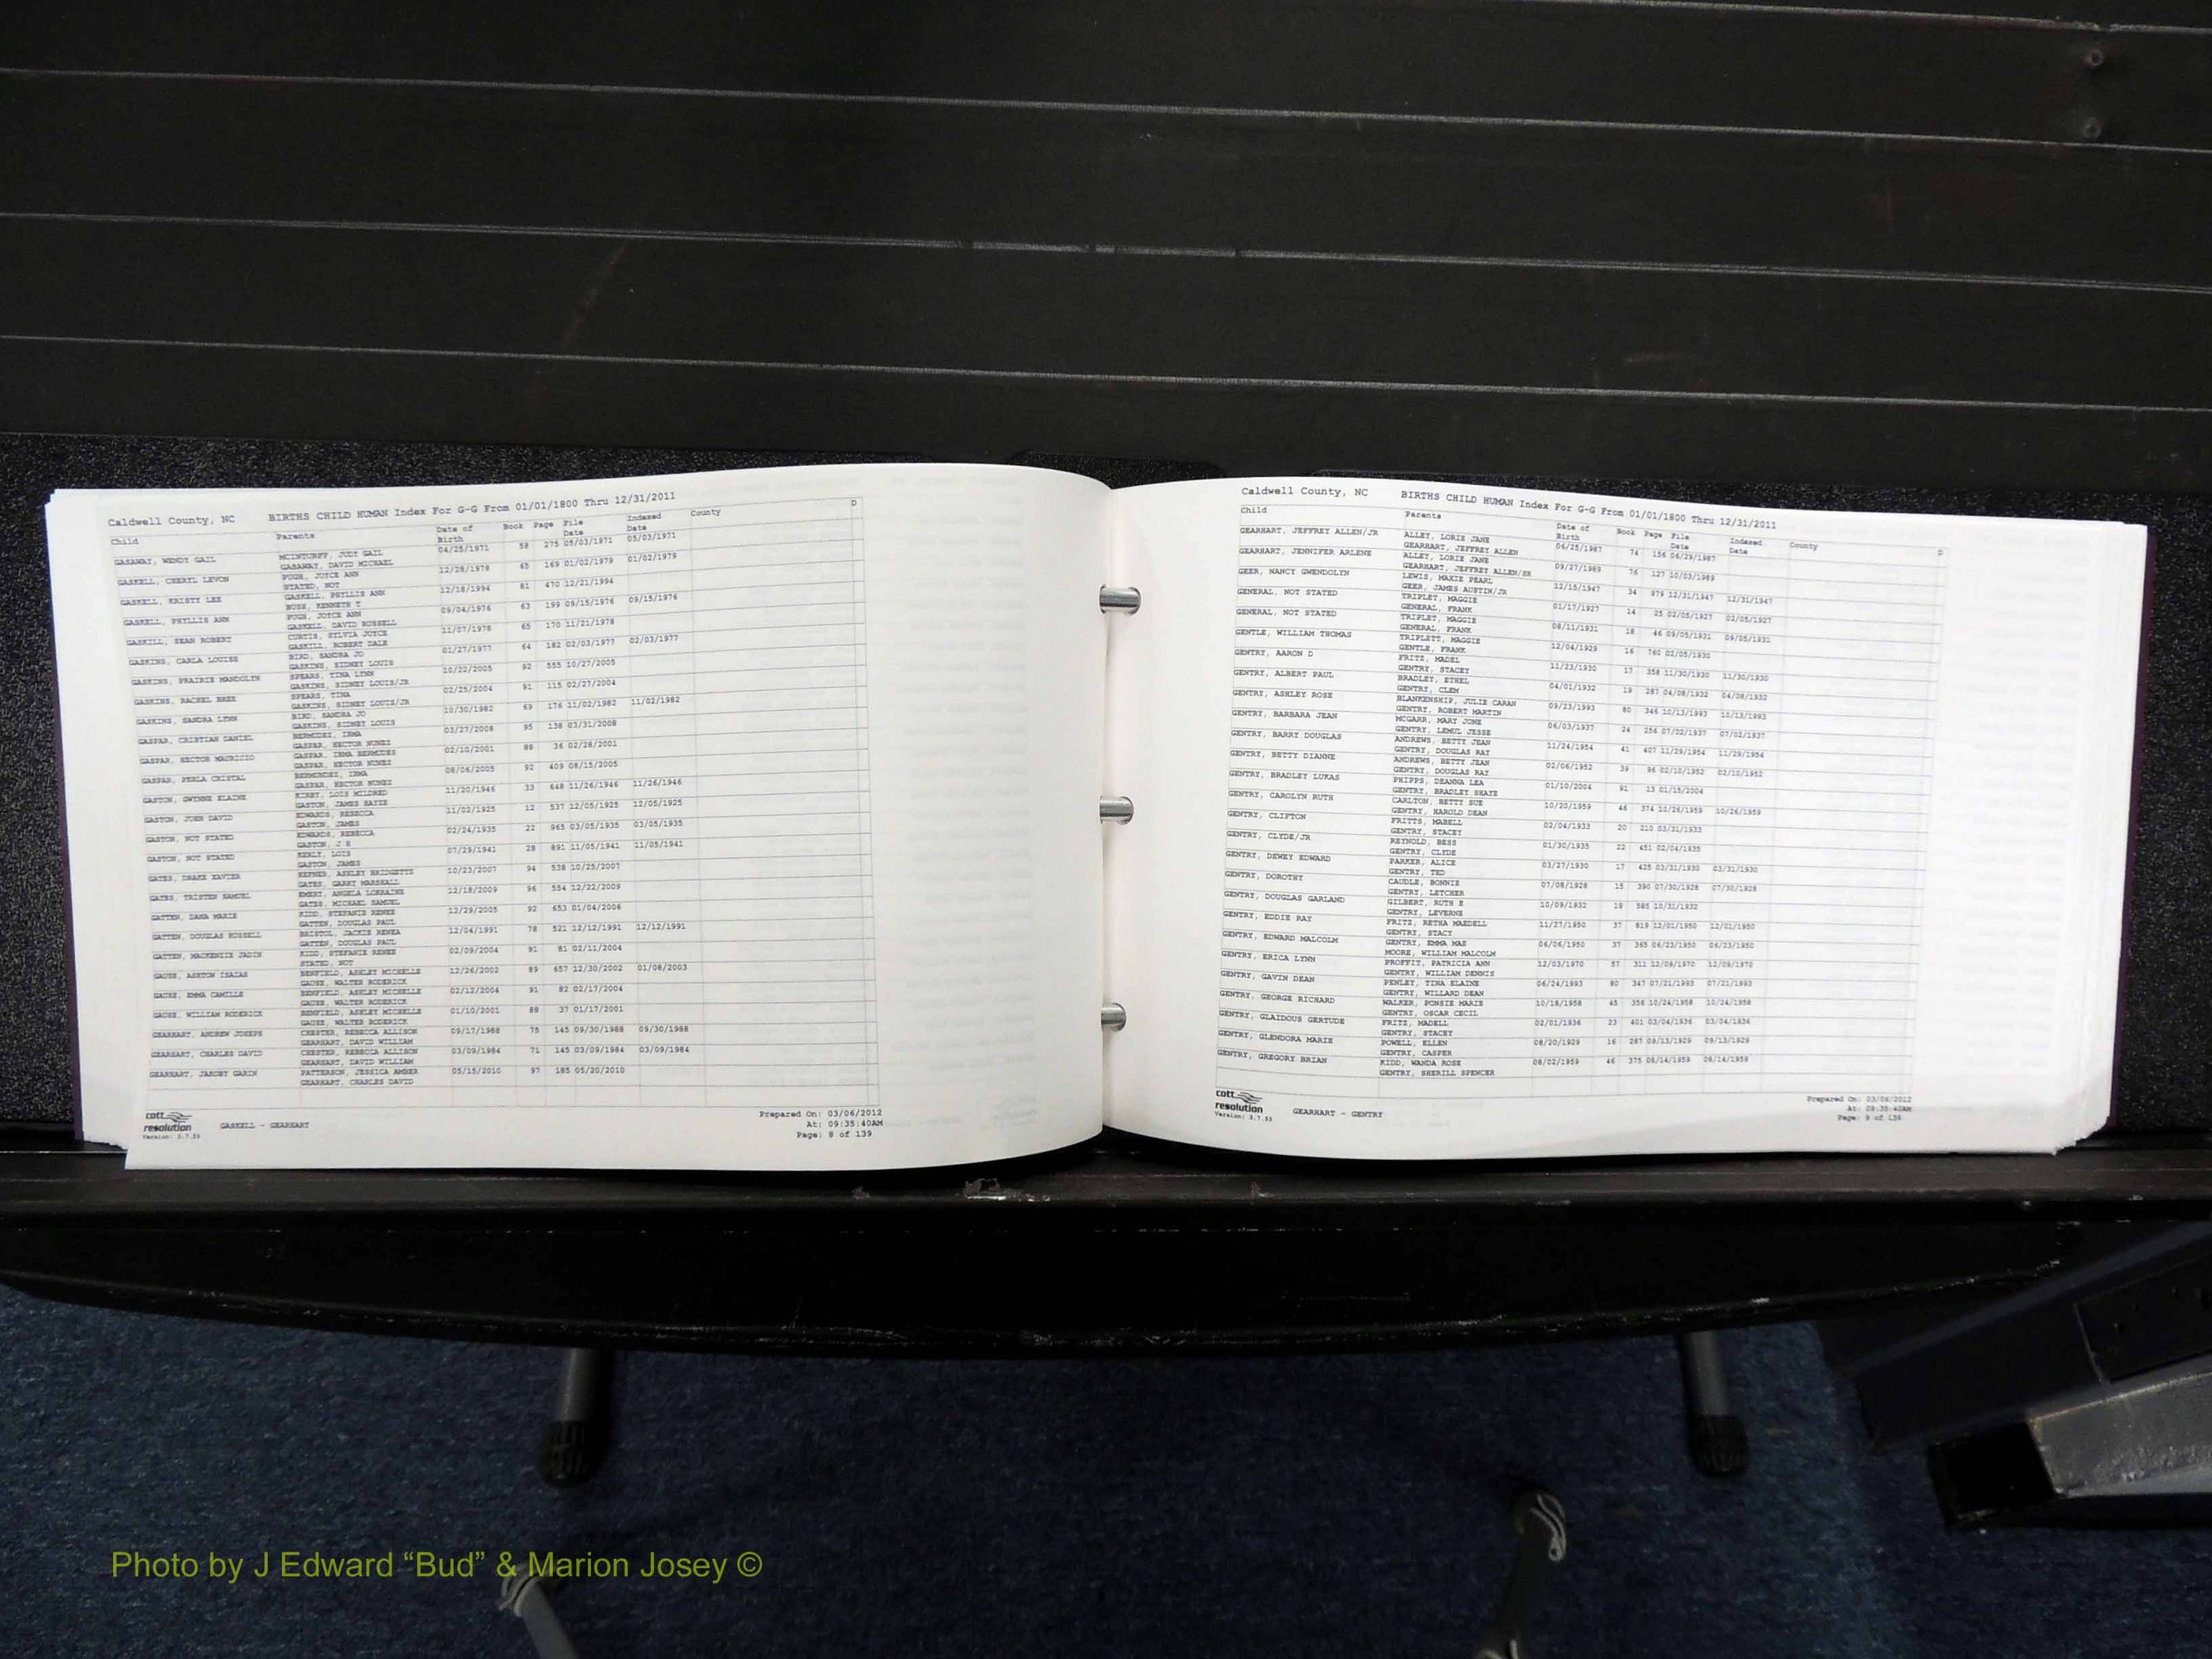 Caldwell County, NC BIRTHS CHILD HUMAN Index For G-G From 01/01/1800 Thru 12/31/2011
Child Parents Date of Birth Book Page File Date Indexed Date County D
GASAWAY, WENDY GAIL MCINTURFF, JUDY GAIL 04/25/1971 58 275 05/03/1971 05/03/1971
GASAWAY, DAVID MICHAEL
GASKELL, CHERYL LEVON PUGH, JOYCE ANN 12/28/1978 65 169 01/02/1979 01/02/1979
STATED, NOT
GASKELL, KRISTY LEE GASKELL, PHYLLIS ANN 12/18/1994 81 470 12/21/1994
BUSH, KENNETH T
GASKELL, PHYLLIS ANN PUGH, JOYCE ANN 09/04/1976 63 199 09/15/1976 09/15/1976
GASKELL, DAVID RUSSELL
GASKILL, SEAN ROBERT CURTIS, SYLVIA JOYCE 11/07/1978 65 170 11/21/1978
GASKILL, ROBERT DALE
GASKINS, CARLA LOUISE BIRD, SANDRA JO 01/27/1977 64 182 02/03/1977 02/03/1977
GASKINS, SIDNEY LOUIS
GASKINS, PRAIRIE MANDOLYN SPEARS, TINA LYNN 10/22/2005 92 555 10/27/2005
GASKINS, SIDNEY LOUIS/JR
GASKINS, RACHEL BREE SPEARS, TINA 02/25/2004 91 115 02/27/2004
GASKINS, SIDNEY LOUIS/JR
GASKINS, SANDRA LYNN BIRD, SANDRA JO 10/30/1982 69 176 11/02/1982 11/02/1982
GASKINS, SIDNEY LOUIS
GASPAR, CRISTIAN DANIEL BERMUDEZ, IRMA 03/27/2008 95 138 03/31/2008
GASPAR, HECTOR NUNEZ
GASPAR, HECTOR MAURICIO GASPAR, IRMA BERMUDES 02/10/2001 88 36 02/28/2001
GASPAR, HECTOR NUNEZ
GASPAR, PERLA CRISTAL BERMUNDEZ, IRMA 08/06/2005 92 409 08/15/2005
GASPAR, HECTOR NUNEZ
GASTON, GWYNNE ELAINE KIRBY, LOIS MILDRED 11/20/1946 33 648 11/26/1946 11/26/1946
GASTON, JAMES HAYZE
GASTON, JOHN DAVID EDWARDS, REBECCA 11/02/1925 12 537 12/05/1925 12/05/1925
GASTON, JAMES
GASTON, NOT STATED EDWARDS, REBECCA 02/24/1935 22 965 03/05/1935 03/05/1935
GASTON, J H
GASTON, NOT STATED KERLY, LOIS 07/29/1941 28 891 11/05/1941 11/05/1941
GASTON, JAMES
GATES, DRAKE XAVIER HEFNER, ASHLEY BRIDGETTE 10/23/2007 94 538 10/25/2007
GATES, GARRY MARSHALL
GATES, TRISTEN SAMUEL EMERT, ANGELA LORRAINE 12/18/2009 96 554 12/22/2009
GATES, MICHAEL SAMUEL
GATTEN, DANA MARIE KIDD, STEFANIE RENEE 12/29/2005 92 653 01/04/2006
GATTEN, DOUGLAS PAUL
GATTEN, DOUGLAS RUSSELL BRISTOL, JACKIE RENEA 12/04/1991 78 521 12/12/1991 12/12/1991
GATTEN, DOUGLAS PAUL
GATTEN, MACKENZIE JADIN KIDD, STEFANIE RENEE 02/09/2004 91 81 02/11/2004
STATED, NOT
GAUSE, ASHTON ISAIAS BENFIELD, ASHLEY MICHELLE 12/26/2002 89 657 12/30/2002 01/08/2003
GAUSE, WALTER RODERICK
GAUSE, EMMA CAMILLE BENFIELD, ASHLEY MICHELLE 02/12/2004 91 82 02/17/2004
GAUSE, WALTER RODERICK
GAUSE, WILLIAM RODERICK BENFIELD, ASHLEY MICHELLE 01/10/2001 88 37 01/17/2001
GAUSE, WALTER RODERICK
GEARHART, ANDREW JOSEPH CHESTER, REBECCA ALLISON 09/17/1988 75 145 09/30/1988 09/30/1988
GEARHART, DAVID WILLIAM
GEARHART, CHARLES DAVID CHESTER, REBECCA ALLISON 03/09/1984 71 145 03/09/1984 03/09/1984
GEARHART, DAVID WILLIAM
GEARHART, JAKOBY GARIN PATTERSON, JESSICA AMBER 05/15/2010 97 185 05/20/2010
GEARHART, CHARLES DAVID
cott resolution
Version: 3.7.53
GASKELL - GEARHART
Prepared On: 03/06/2012
At: 09:35:40AM
Page: 8 of 139
Caldwell County, NC BIRTHS CHILD HUMAN Index For G-G From 01/01/1800 Thru 12/31/2011
Child Parents Date of Birth Book Page File Date Indexed Date County D
GEARHART, JEFFREY ALLEN/JR ALLEY, LORIE JANE 06/25/1987 74 156 06/29/1987
GEARHART, JEFFREY ALLEN
GEARHART, JENNIFER ARLENE ALLEY, LORIE JANE 09/27/1989 76 127 10/03/1989
GEARHART, JEFFREY ALLEN/SR
GEER, NANCY GWENDOLYN LEWIS, MAXIE PEARL 12/15/1947 34 979 12/31/1947 12/31/1947
GEER, JAMES AUSTIN/JR
GENERAL, NOT STATED TRIPLET, MAGGIE 01/17/1927 14 25 02/05/1927 02/05/1927
GENERAL, FRANK
GENERAL, NOT STATED TRIPLET, MAGGIE 08/11/1931 18 46 09/05/1931 09/05/1931
GENERAL, FRANK
GENTLE, WILLIAM THOMAS TRIPLETT, MAGGIE 12/04/1929 16 760 02/05/1930
GENTLE, FRANK
GENTRY, AARON D FRITZ, MADEL 11/23/1930 17 358 11/30/1930 11/30/1930
GENTRY, STACEY
GENTRY, ALBERT PAUL BRADLEY, ETHEL 04/01/1932 19 287 04/08/1932 04/08/1932
GENTRY, CLEM
GENTRY, ASHLEY ROSE BLANKENSHIP, JULIE CARAN 09/23/1993 80 346 10/13/1993 10/13/1993
GENTRY, ROBERT MARTIN
GENTRY, BARBARA JEAN MCGARR, MARY JONE 06/03/1937 24 256 07/02/1937 07/02/1937
GENTRY, LEMUL JESSE
GENTRY, BARRY DOUGLAS ANDREWS, BETTY JEAN 11/24/1954 41 407 11/29/1954 11/29/1954
GENTRY, DOUGLAS RAY
GENTRY, BETTY DIANNE ANDREWS, BETTY JEAN 02/06/1952 39 96 02/10/1952 02/10/1952
GENTRY, DOUGLAS RAY
GENTRY, BRADLEY LUKAS PHIPPS, DEANNA LEA 01/10/2004 91 13 01/15/2004
GENTRY, BRADLEY SHAYE
GENTRY, CAROLYN RUTH CARLTON, BETTY SUE 10/20/1959 46 374 10/26/1959 10/26/1959
GENTRY, HAROLD DEAN
GENTRY, CLIFTON FRITTS, MABELL 02/04/1933 20 210 03/31/1933
GENTRY, STACEY
GENTRY, CLYDE/JR REYNOLD, BESS 01/30/1935 22 451 02/04/1935
GENTRY, CLYDE
GENTRY, DEWEY EDWARD PARKER, ALICE 03/27/1930 17 425 03/31/1930 03/31/1930
GENTRY, TED
GENTRY, DOROTHY CAUDLE, BONNIE 07/08/1928 15 390 07/30/1928 07/30/1928
GENTRY, LETCHER
GENTRY, DOUGLAS GARLAND GILBERT, RUTH E 10/09/1932 19 585 10/31/1932
GENTRY, LEVERNE
GENTRY, EDDIE RAY FRITZ, RETHA MAEDELL 11/27/1950 37 819 12/01/1950 12/01/1950
GENTRY, STACY
GENTRY, EDWARD MALCOLM GENTRY, EMMA MAE 06/06/1950 37 365 06/23/1950 06/23/1950
MOORE, WILLIAM MALCOLM
GENTRY, ERICA LYNN PROFFIT, PATRICIA ANN 12/03/1970 57 311 12/09/1970 12/09/1970
GENTRY, WILLIAM DENNIS
GENTRY, GAVIN DEAN PENLEY, TINA ELAINE 06/24/1993 80 347 07/21/1993 07/21/1993
GENTRY, WILLARD DEAN
GENTRY, GEORGE RICHARD WALKER, PONSIE MARIE 10/18/1958 45 356 10/24/1958 10/24/1958
GENTRY, OSCAR CECIL
GENTRY, GLAIDOUS GERTUDE FRITZ, MADELL 02/01/1936 23 401 03/04/1936 03/04/1936
GENTRY, STACEY
GENTRY, GLENDORA MARIE POWELL, ELLEN 08/20/1929 16 287 09/13/1929 09/13/1929
GENTRY, CASPER
GENTRY, GREGORY BRIAN KIDD, WANDA ROSE 08/02/1959 46 375 08/14/1959 08/14/1959
GENTRY, SHERILL SPENCER
cott resolution
Version: 3.7.53
GEARHART - GENTRY
Prepared On: 03/06/2012
At: 09:35:40AM
Page: 9 of 139
Photo by J Edward “Bud” & Marion Josey ©